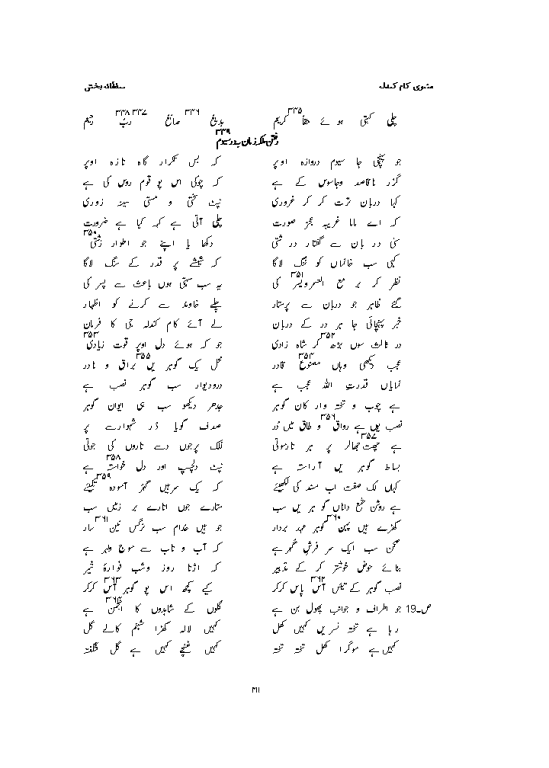 مثنوی کام کندلہ سلطان بخشی
چلی کہتی ہوئے حقا ۳۳۵ کریم بدیع ۳۳۶ صانع ۳۳۷ ربّ ۳۳۸ رحیم
۳۳۹ رفتن ملکہ زمان بدر سیوم
جو پہنچی جا سیوم دروازہ اوپر کہ بس تکرار گاہ تازہ اوپر
گزر ناقاصد وجاسوس کے ہے کہ چوکی اس پو قوم روس کی ہے
کہا دربان ترت کر کر غروری نپٹ سختی و مستی سینہ زوری
کہ اے ماما غریبہ عجز صورت چلی آتی ہے کہہ کیا ہے ضرورت
سنی در بان سے گفتار در شتی دکھا یا اپنے جو اطوار زشتی ۳۵۰
کہی سب خانماں کو ننگ لاگا کہ شیشے پر قدر کے سنگ لاگا
نظر کر بر مع العسر ویسر ۳۵۱ کی یہ سب سہتی ہوں باعث سے پسر کی
گئے ظاہر جو دربان سے پرستار چلے خاوند سے کرنے کو اظہار
خبر پہنچائی جا ہر در کے دربان لے آئے کام کندلہ جی کا فرمان
در ثالث سوں بڑھ ۳۵۲ کر شاہ زادی جو کہ ہوئے دل اوپر قوت زیادی ۳۵۳
عجب دیکھی وہاں مصنوع ۳۵۴ قادر محل یک گوہریں ۳۵۵ براق و نادر
نمایاں قدرت اللہ عجب ہے درودیوار سب گوہر نصب ہے
ہے چوب و تختہ وار کان گوہر جدھر دیکھو سب ہی ایوان گوہر
نصب یوں ہے رواق ۳۵۶ و طاق میں دُر صدف گویا دُر شہوارسے پر
ہے چھت جھالر ۳۵۷ پر ہر تارموتی فلک پرجوں دسے تاروں کی جوتی
بساط گوہریں آراستہ ہے نپٹ دلچسپ ۳۵۸ اور دل خواستہ ہے
کہاں لک صفت اب مسند کی لکھیئے کہ یک سرمیں گہر آسودہ ۳۵۹ تکیئے
ہے روشن شمع داناں گوہریں سب ستارے جوں اتارے ہر زمیں سب
کھڑے ہیں پہن ۳۶۰ گوہر عہد بردار جو ہیں خدام سب نرگس نین ۳۶۱ سار
صحن سب ایک سر فرش گہر ہے کہ آب و تاب سے موج وہر ہے
بنائے حوض خوشتر کر کے تدبیر کہ اڑتا روز وشب فوارۂ شیر
نصب گوہر کے تیئں آس ۳۶۲ پاس کرکر کیے کچھ اس پو گوہر آس ۳۶۳ کرکر
ص۔19 جو اطراف و جوانب پھول بن ہے گلوں کے شاہدوں کا انجمن ۳۶۴ ہے
رہا ہے تختہ نسریں کہیں کھل کہیں لالہ کھڑا شبنم کالے گل
کہیں ہے موگرا کھل تختہ تختہ کہیں غنچے کہیں ہے گل شگفتہ
۳۱۱